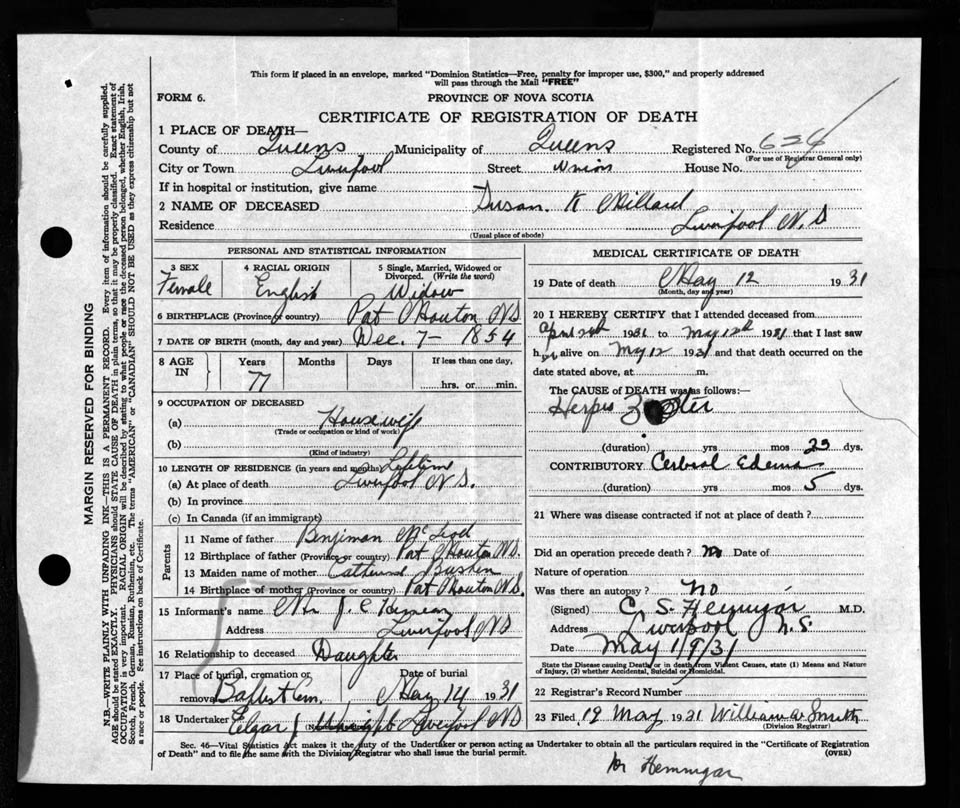 This form if placed in an envelope, marked "Dominion Statistics—Free, penalty for improper use, $300," and properly addressed
will pass through the Mail "FREE"
FORM 6.
PROVINCE OF NOVA SCOTIA
CERTIFICATE OF REGISTRATION OF DEATH
1 PLACE OF DEATH—
County of Queens Municipality of Queens Registered No. 626
(For use of Registrar General only)
City or Town Liverpool Street Union House No.
If in hospital or institution, give name
2 NAME OF DECEASED Susan K Millard
Residence Liverpool N.S
(Usual place of abode)
PERSONAL AND STATISTICAL INFORMATION
3 SEX 4 RACIAL ORIGIN 5 Single, Married, Widowed or
Divorced. (Write the word)
Female English Widow
6 BIRTHPLACE (Province or country) Pat Mouton NS
7 DATE OF BIRTH (month, day and year) Dec. 7- 1854
8 AGE IN Years Months Days If less than one day,
77 hrs. or min.
9 OCCUPATION OF DECEASED
(a) Housewife
(Trade or occupation or kind of work)
(b)
(Kind of industry)
10 LENGTH OF RESIDENCE (in years and months) Lifetime
(a) At place of death Liverpool N.S.
(b) In province
(c) In Canada (if an immigrant)
Parents
11 Name of father Benjiman McLeod
12 Birthplace of father (Province or country) Pat Mouton N.S.
13 Maiden name of mother Catherine
14 Birthplace of mother (Province or country) Pat Mouton N.S.
15 Informant's name Mrs J. E
Address Liverpool NS
16 Relationship to deceased Daughter
17 Place of burial, cremation or Date of burial
removal May 14 1931
18 Undertaker J Liverpool NS
MEDICAL CERTIFICATE OF DEATH
19 Date of death May 12 1931
(Month, day and year)
20 I HEREBY CERTIFY that I attended deceased from
April 1931 to May 12th 1931 that I last saw
her alive on May 12 1931 and that death occurred on the
date stated above, at m.
The CAUSE of DEATH was as follows:—
Herpes Zoster
(duration) yrs mos 23 dys.
CONTRIBUTORY Cerbral Edema
(duration) yrs mos 5 dys.
21 Where was disease contracted if not at place of death?
Did an operation precede death? no Date of
Nature of operation
Was there an autopsy? no
(Signed) C. S. Hennigar M.D.
Address Liverpool N.S.
Date May 1/9/31
State the Disease causing Death, or in death from Violent Causes, state (1) Means and Nature
of Injury, (2) whether Accidental, Suicidal or Homicidal.
22 Registrar's Record Number
23 Filed 19 May 1931 William W Smith
(Division Registrar)
Sec. 46—Vital Statistics Act makes it the duty of the Undertaker or person acting as Undertaker to obtain all the particulars required in the "Certificate of Registration
of Death" and to file the same with the Division Registrar who shall issue the burial permit.
(OVER)
Dr Hennigar
MARGIN RESERVED FOR BINDING
N.B.—WRITE PLAINLY WITH UNFADING INK—THIS IS A PERMANENT RECORD. Every item of information should be carefully supplied.
AGE should be stated EXACTLY. PHYSICIANS should STATE CAUSE OF DEATH in plain terms, so that it may be properly classified. Exact statement of
OCCUPATION is very important. RACIAL ORIGIN will be described by stating to what people or race the deceased person belonged, whether English, Irish,
Scotch, French, German, Russian, Ruthenian, etc. The terms "AMERICAN" or "CANADIAN" SHOULD NOT BE USED as they express citizenship but not
a race or people. See instructions on back of Certificate.